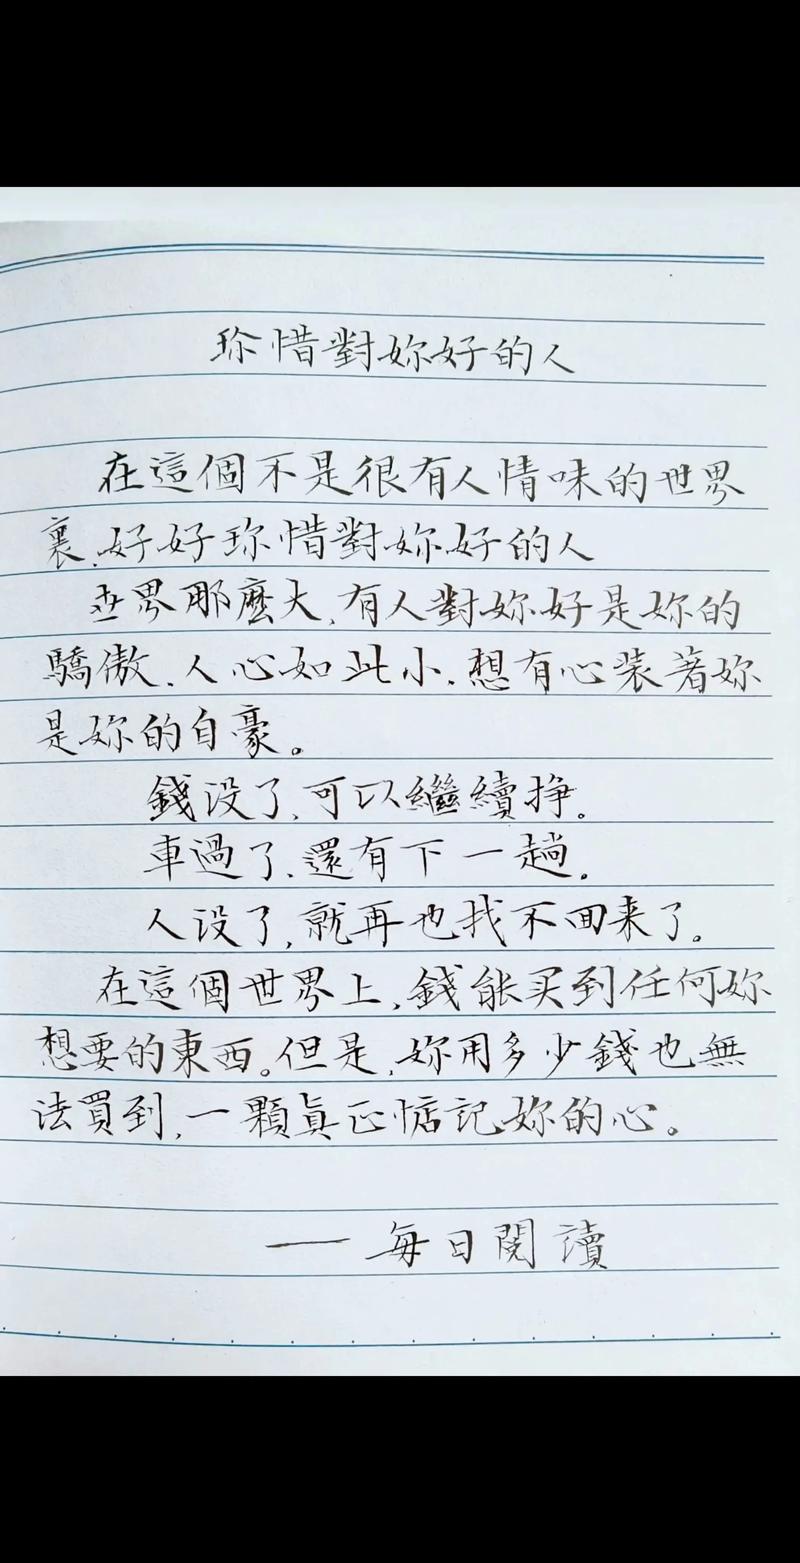 珎惜對妳好的人
在這個不是很有人情味的世界
裏、好好珎惜對妳好的人
世界那麽大、有人對妳好是妳的
驕傲、人心如此小、想有心装著妳
是妳的自豪。
錢没了、可以繼續挣。
車過了、還有下一趟。
人没了、就再也找不回来了。
在這個世界上、錢能买到任何妳
想要的東西。但是、妳用多少錢也無
法買到、一顆真正惦記妳的心。
——每日閱讀